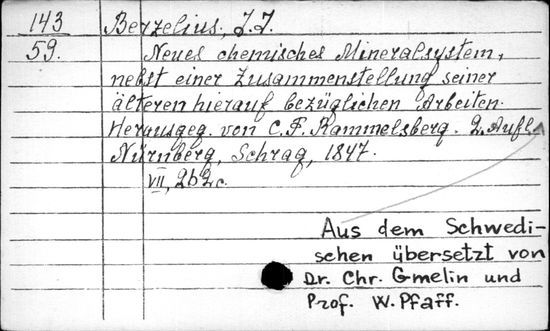 143 Berzelius, J.J.
59. Neues chemisches Mineralsystem,
nebst einer Zusammenstellung seiner
älteren hierauf bezüglichen Arbeiten.
Herausgeg. von C.F. Rammelsberg. 2. Aufl.
Nürnberg, Schrag, 1847.
VII, 262c.
Aus dem Schwedi-
schen übersetzt von
Dr. Chr. Gmelin und
Prof. W. Pfaff.